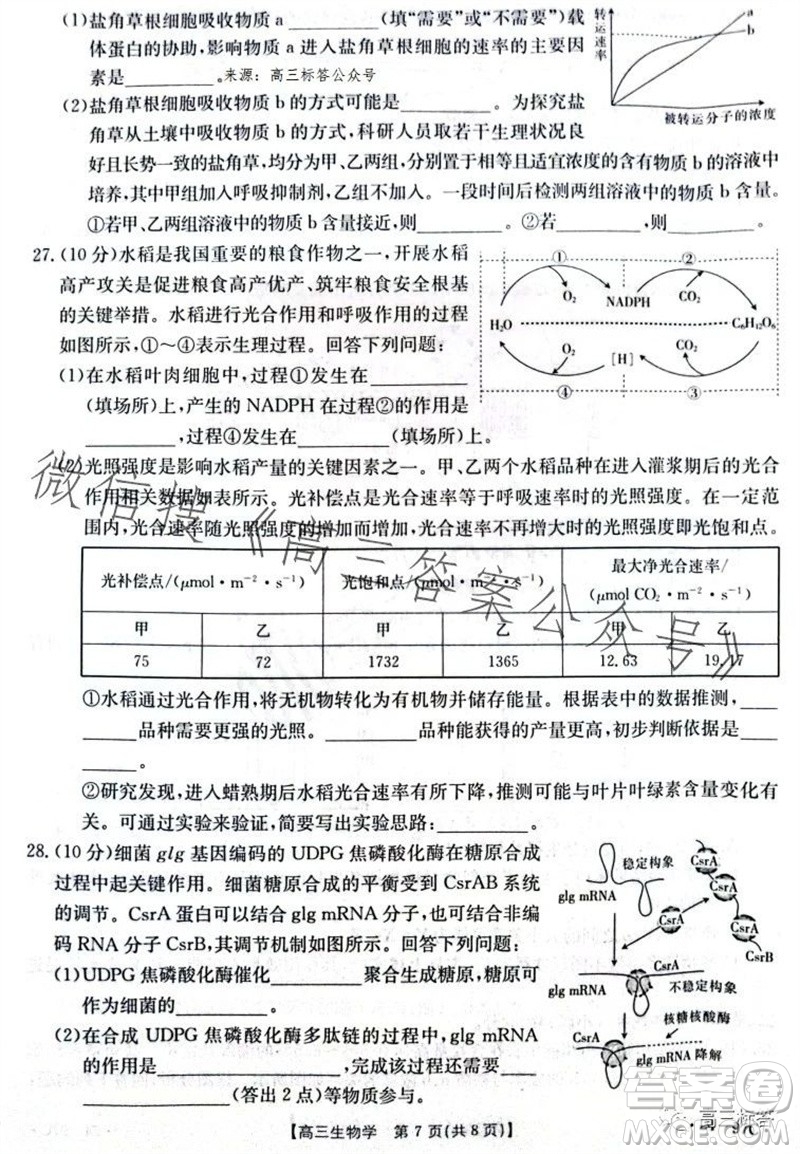 (1)盐角草根细胞吸收物质 a ________(填“需要”或“不需要”)载
体蛋白的协助,影响物质 a 进入盐角草根细胞的速率的主要因素
是________。
来源：高三标答公众号
(2)盐角草根细胞吸收物质 b 的方式可能是________。为探究盐
角草从土壤中吸收物质 b 的方式,科研人员取若干生理状况良
好且长势一致的盐角草,均分为甲、乙两组,分别置于相且适宜浓度的含有物质 b 的溶液中
培养,其中甲组加入呼吸抑制剂,乙组不加入。一段时间后检测两组溶液中的物质 b 含量。
①若甲、乙两组溶液中的物质 b 含量接近,则________。②若________,则________。
转运速率
a
b
被转运分子的浓度
27.(10 分)水稻是我国重要的粮食作物之一,开展水稻
高产攻关是促进粮食高产优产、筑牢粮食安全根基
的关键举措。水稻进行光合作用和呼吸作用的过程
如图所示,①～④表示生理过程。回答下列问题:
(1)在水稻叶肉细胞中,过程①发生在________
(填场所)上,产生的 NADPH 在过程②的作用是
________,过程④发生在________(填场所)。
① ②
O₂ NADPH CO₂
H₂O C₆H₁₂O₆
O₂ [H] CO₂
④ ③
(2)光照强度是影响水稻产量的关键因素之一。甲、乙两个水稻品种在进入灌浆期后的光合
作用相关数据如表所示。光补偿点是光合速率等于呼吸速率时的光照强度。在一定范
围内,光合速率随光照强度的增加而增加,光合速率不再增大时的光照强度即光饱和点。
光补偿点/(μmol·m⁻²·s⁻¹) 光饱和点/(μmol·m⁻²·s⁻¹) 最大净光合速率/
(μmol CO₂·m⁻²·s⁻¹)
甲 乙 甲 乙 甲 乙
75 72 1732 1365 12.63 19.17
①水稻通过光合作用,将无机物转化为有机物并储存能量。根据表中的数据推测,____
____品种需要更强的光照。________品种能获得的产量更高,初步判断依据是________
________。
②研究发现,进入蜡熟期后水稻光合速率有所下降,推测可能与叶片叶绿素含量变化有
关。可通过实验来验证,简要写出实验思路:________。
28.(10 分)细菌 glg 基因编码的 UDPG 焦磷酸化酶在糖原合成
过程中起关键作用。细菌糖原合成的平衡受到 CsrAB 系统
的调节。CsrA 蛋白可以结合 glg mRNA 分子,也可结合非编
码 RNA 分子 CsrB,其调节机制如图所示。回答下列问题:
(1)UDPG 焦磷酸化酶催化________聚合生成糖原,糖原可
作为细菌的________。
(2)在合成 UDPG 焦磷酸化酶多肽链的过程中,glg mRNA
的作用是________,完成该过程还需要________
________(答出 2 点)等物质参与。
稳定构象
glg mRNA
CsrA
CsrA
CsrA
CsrB
CsrA
不稳定构象
核糖核酸酶
CsrA
glg mRNA 降解
【高三生物学 第 7 页(共 8 页)】
微信搜《高三答案公众号》
答案圈
高三标答